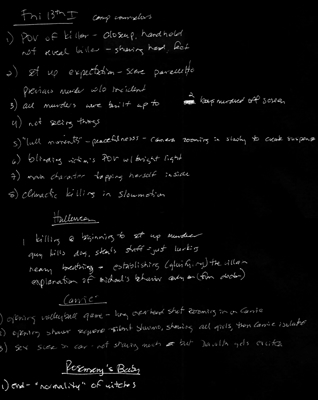 Fri 13th I camp counselors
1) POV of killer - closeup, handheld
not reveal killer - showing hand, feet
2) set up expectation - scene parallel to
previous murder w/o incident
3) all murders were built up to 2 keep murdered off screen
4) not seeing things
5) "lull moments" - peacefulness - camera zooming in slowly to create suspense
6) blinding victim's POV w/ bright light
7) main character trapping herself inside
8) climactic killing in slow motion
Halloween
1 killing @ beginning to set up murder
guy kills dog, steals stuff - just lurking
heavy breathing - establishing the villain
explanation of michael's behavior early on (from doctor)
Carrie
1) opening volleyball game - long overhead shot zooming in on Carrie
2) opening shower sequence silent showing all girls, then Carrie isolated
3) sex scene in car - not showing much but
Rosemary's Baby
1) end - "normality" of witches